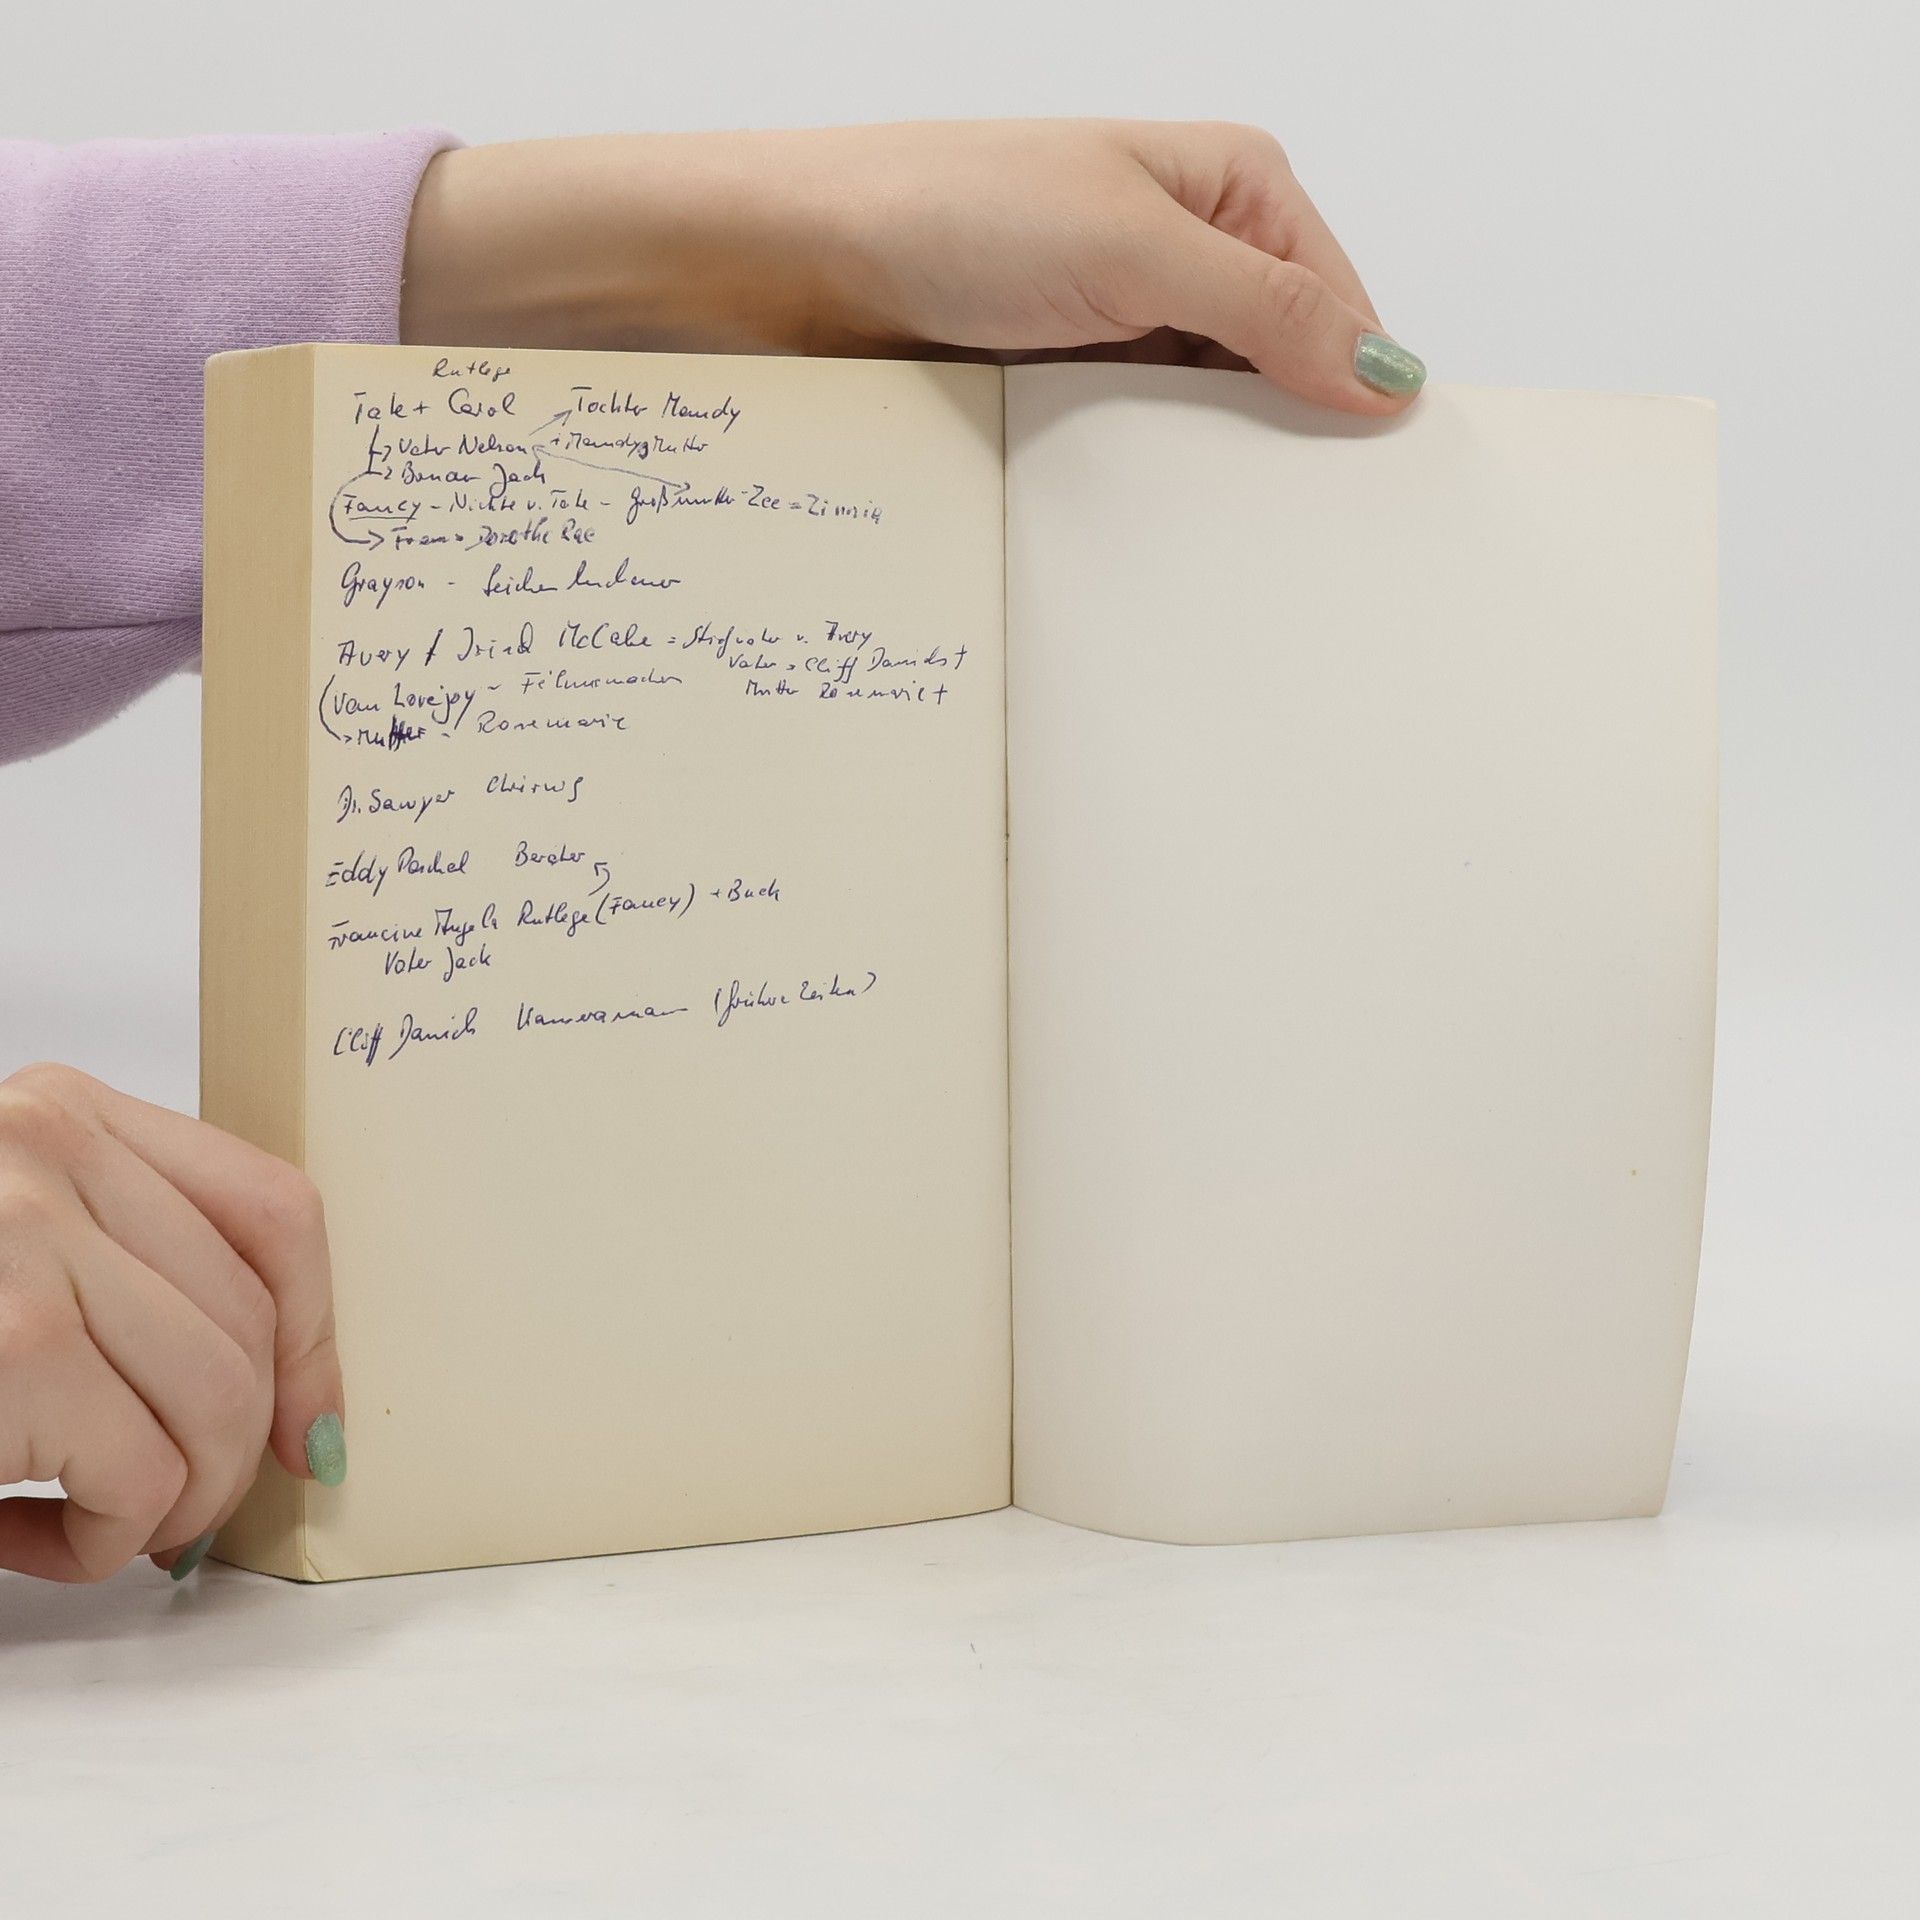 Rutlege
Tate + Carol Tochter Mandy
Vater Nelson + Mandys Mutter
Jack
Fancy - Nichte v. Tate - Großmutter Zee = Zinnia
Frau = Dorothe Rae
Grayson - Leichenbeschauer
Avery / Irish McCabe = Stiefvater v. Avery
Vater = Cliff Daniels †
Van Lovejoy - Filmemacher
Mutter Rosemarie †
Mutter - Rosemarie
Dr. Sawyer Chirurg
Eddy Paschal Berater
Francine Angela Rutlege (Fancy) + Buck
Vater Jack
Cliff Daniels Kameramann (frühere Zeiten)